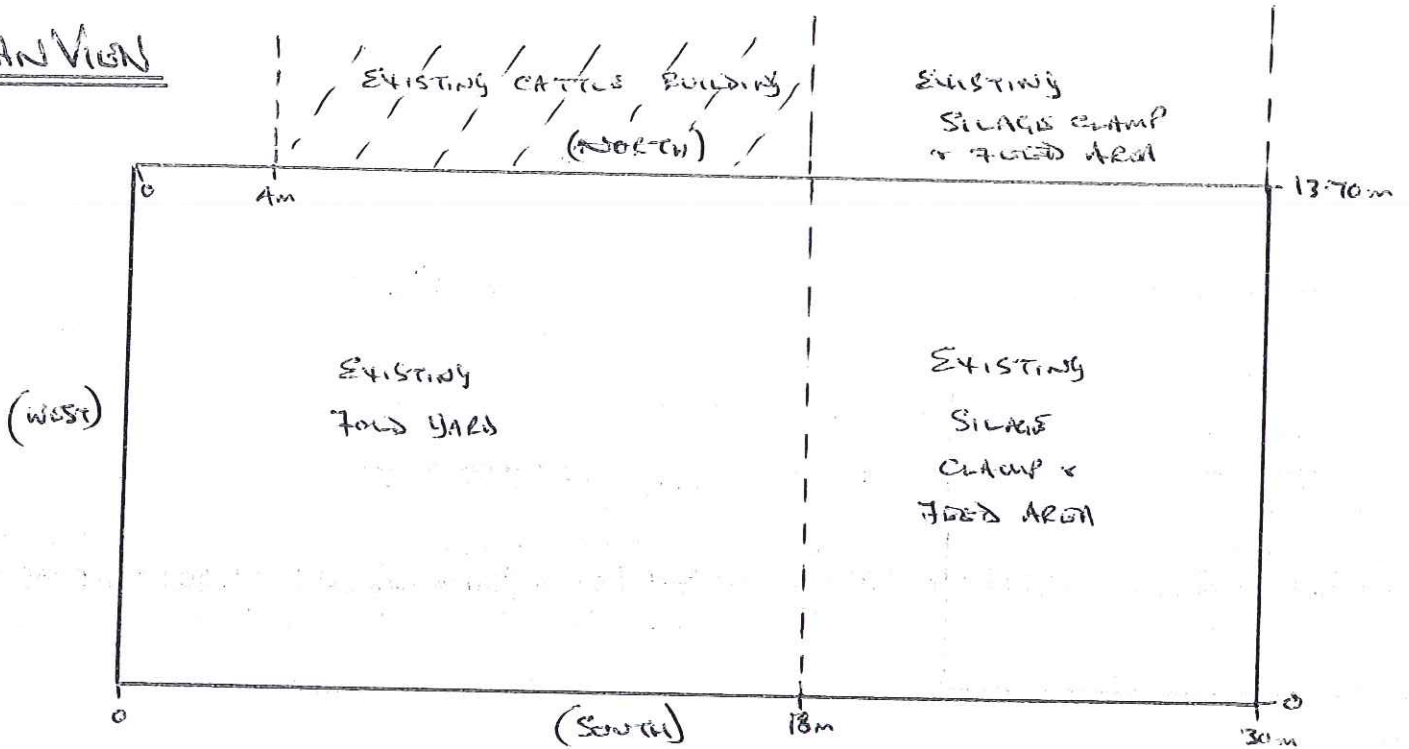 AN VIEW
EXISTING CATTLE BUILDING
(NORTH)
EXISTING
SILAGE CLAMP
& FEED AREA
0
4m
13.70m
(WEST)
EXISTING
FOLD YARD
EXISTING
SILAGE
CLAMP &
FEED AREA
0
(SOUTH)
18m
0
30m